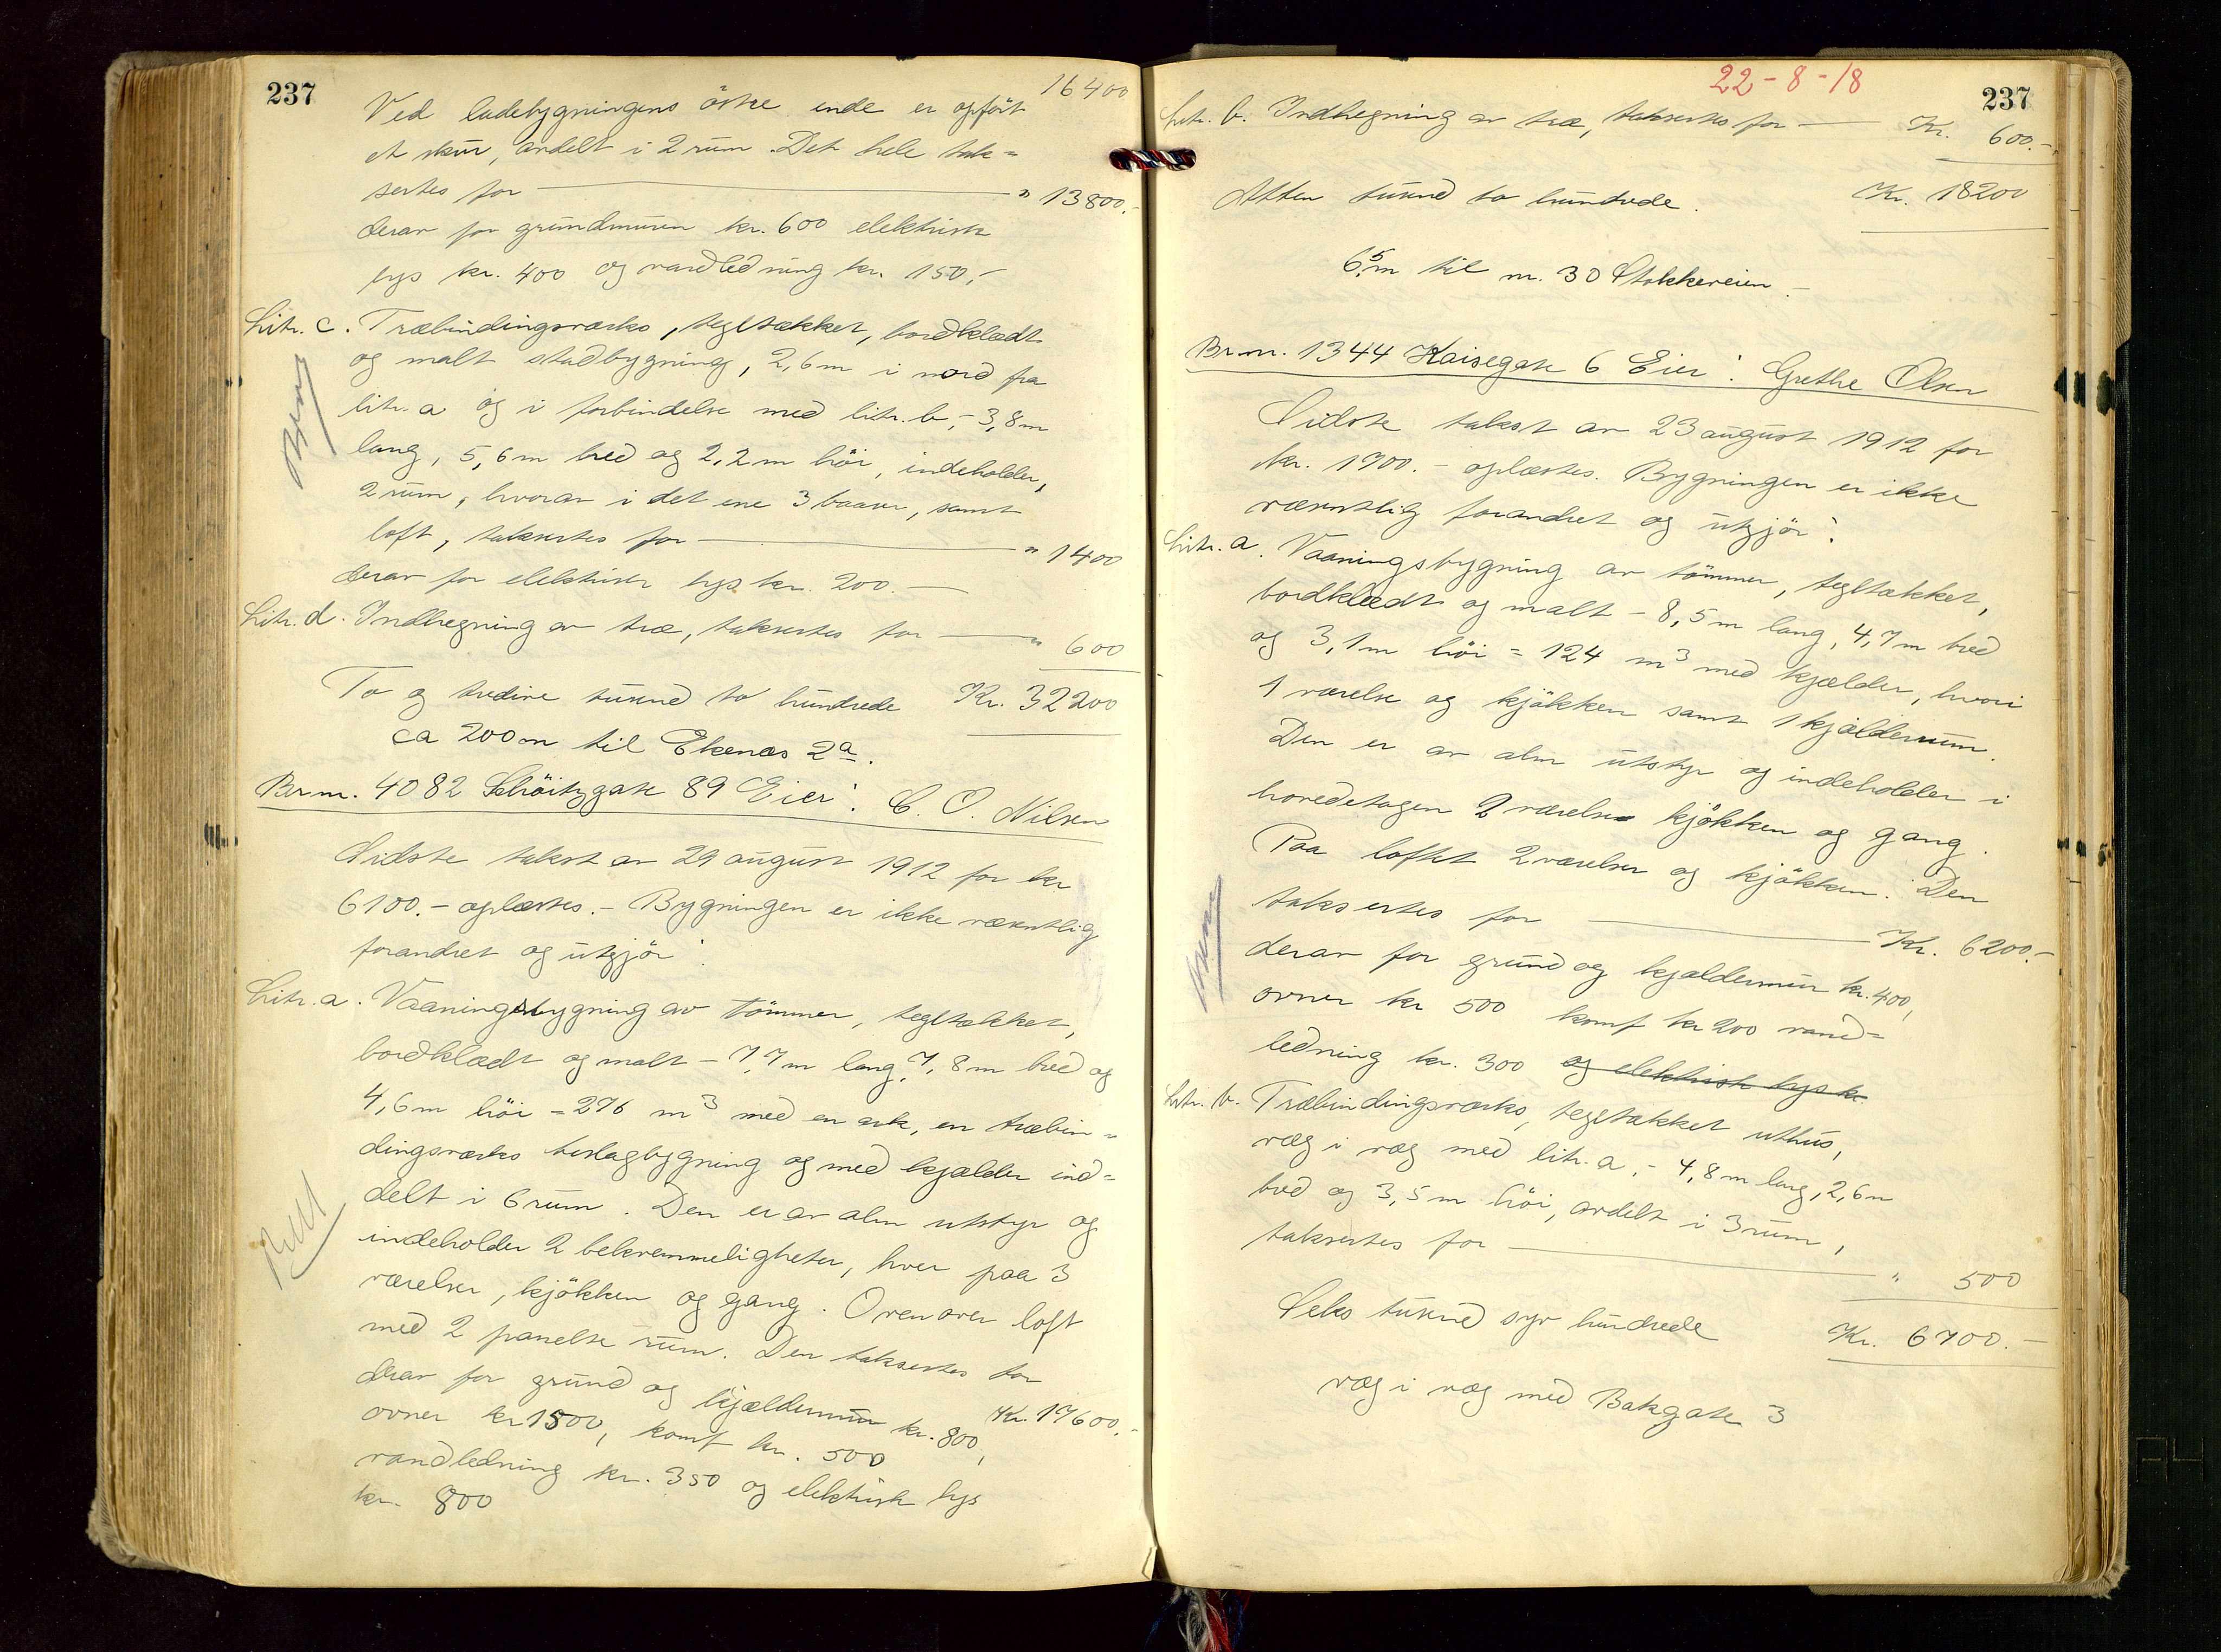 237
16400
Ved ladebygningens östre ende er opfört
et skur, avdelt i 2 rum. Det hele tak=
sertes for " 13800.-
derav for grundmuren kr. 600 elektrisk
lys kr. 400 og vandledning kr. 150.-
Litr. c. Træbindingsverks, tegltækket, bordklædt
og malt staldbygning, 2,6 m i nord fra
litr. a og i forbindelse med litr. b, - 3,8 m
lang, 5,6 m bred og 2,2 m höi, indeholder,
2 rum, hvorav i det ene 3 baaser, samt
loft, taksertes for " 1400
derav for elektrisk lys kr. 200.-
Litr. d. Indhegning av træ, taksertes for " 600
To og tredive tusend to hundrede Kr. 32200
ca 200 m til Ekenæs 2a.
Br.nr. 4082 Schöitzgate 89 Eier: C. O. Nilsen
Sidste takst av 29 august 1912 for kr
6100.- oplæstes. - Bygningen er ikke væsentlig
forandret og utgjör:
Litr. a. Vaaningsbygning av tömmer, tegltækket,
bordklædt og malt - 7,7 m lang, 7,8 m bred og
4,6 m höi = 276 m3 med en ark, en træbin=
dingsverks bislagbygning og med kjælder ind=
delt i 6 rum. Den er av alm utstyr og
indeholder 2 bekvemmeligheter, hver paa 3
værelser, kjökken og gang. Ovenover loft
med 2 panelte rum. Den taksertes for
Kr. 17600.-
derav for grund og kjældermur kr. 800,
ovner kr 1500, komf kr. 500
vandledning kr. 350 og elektrisk lys
kr. 800
22-8-18
237
Litr. b. Indhegning av træ, taksertes for Kr. 600.-
Atten tusend to hundrede. Kr. 18200
6,5 m til nr. 30 Stokkeveien.-
Br.nr. 1344 Kaisegate 6 Eier: Grethe Olsen
Sidste takst av 23 august 1912 for
kr. 1900.- oplæstes. Bygningen er ikke
væsentlig forandret og utgjör:
Litr. a. Vaaningsbygning av tömmer, tegltækket,
bordklædt og malt - 8,5 m lang, 4,7 m bred
og 3,1 m höi = 124 m3 med kjælder, hvori
1 værelse og kjökken samt 1 kjælderrum.
Den er av alm utstyr og indeholder i
hovedetagen 2 værelser kjökken og gang.
Paa loftet 2 værelser og kjökken. Den
taksertes for Kr. 6200.-
derav for grund og kjældermur kr. 400,
ovner kr 500 komf kr 200 vand=
ledning kr. 300 og elektrisk lys kr.
Litr. b. Træbindingsverks, tegltækket uthus,
væg i væg med litr. a, - 4,8 m lang, 2,6 m
bred og 3,5 m höi, avdelt i 3 rum,
taksertes for " 500
Seks tusend syv hundrede Kr. 6700.-
væg i væg med Bakgate 3